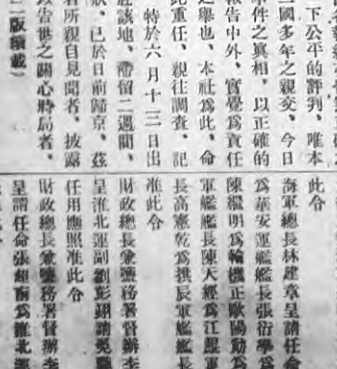 下公平的評判、唯本
二國多年之親交、今日
事件之眞相、以正確的
報告中外、實覺爲責任
之舉也、本社爲此、命
此重任、親往調查、記
特於六月十三日出
該地、滯留二週間、
於日前歸京、茲
所親自見聞者、披露
告世之關心時局者、
二版續載
此令
海軍總長林建章呈請任命
爲華安運艦艦長張衍學爲
陳繼明爲輪機正歐陽勤爲
軍艦艦長陳天經爲江鯤軍
長高憲乾爲拱辰軍艦艦長
准此令
財政總長兼鹽務署督辦李
呈淮北運副劉彭翊請免
任用應照准此令
財政總長兼鹽務署督辦李
呈請任命張超南爲淮北運